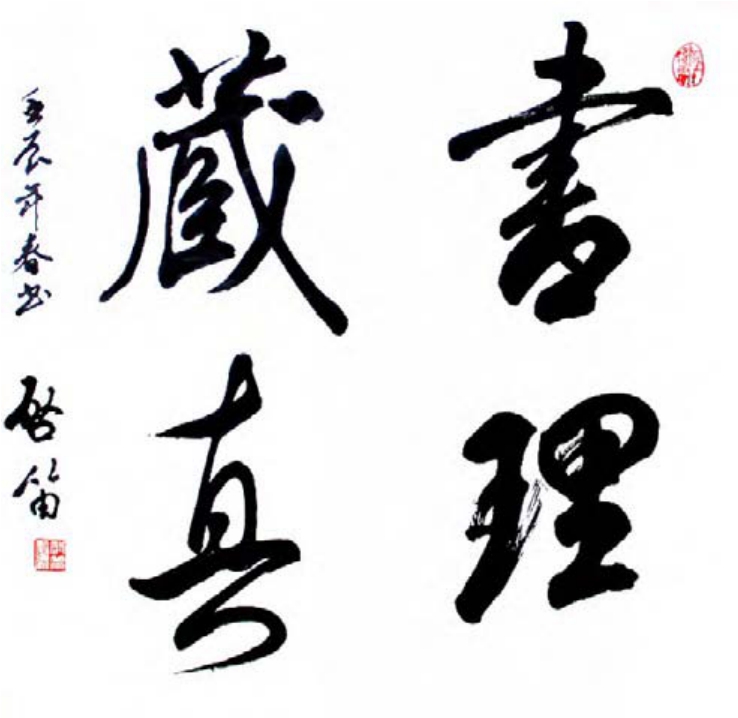 書理
藏真
壬辰年春書
啓笛